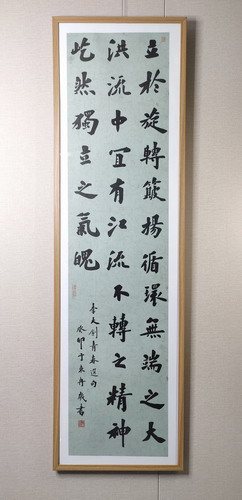 立於旋轉簸揚循環無端之大
洪流中宜有江流不轉之精神
屹然獨立之氣魄
李大釗青春選句
癸卯于京丹書